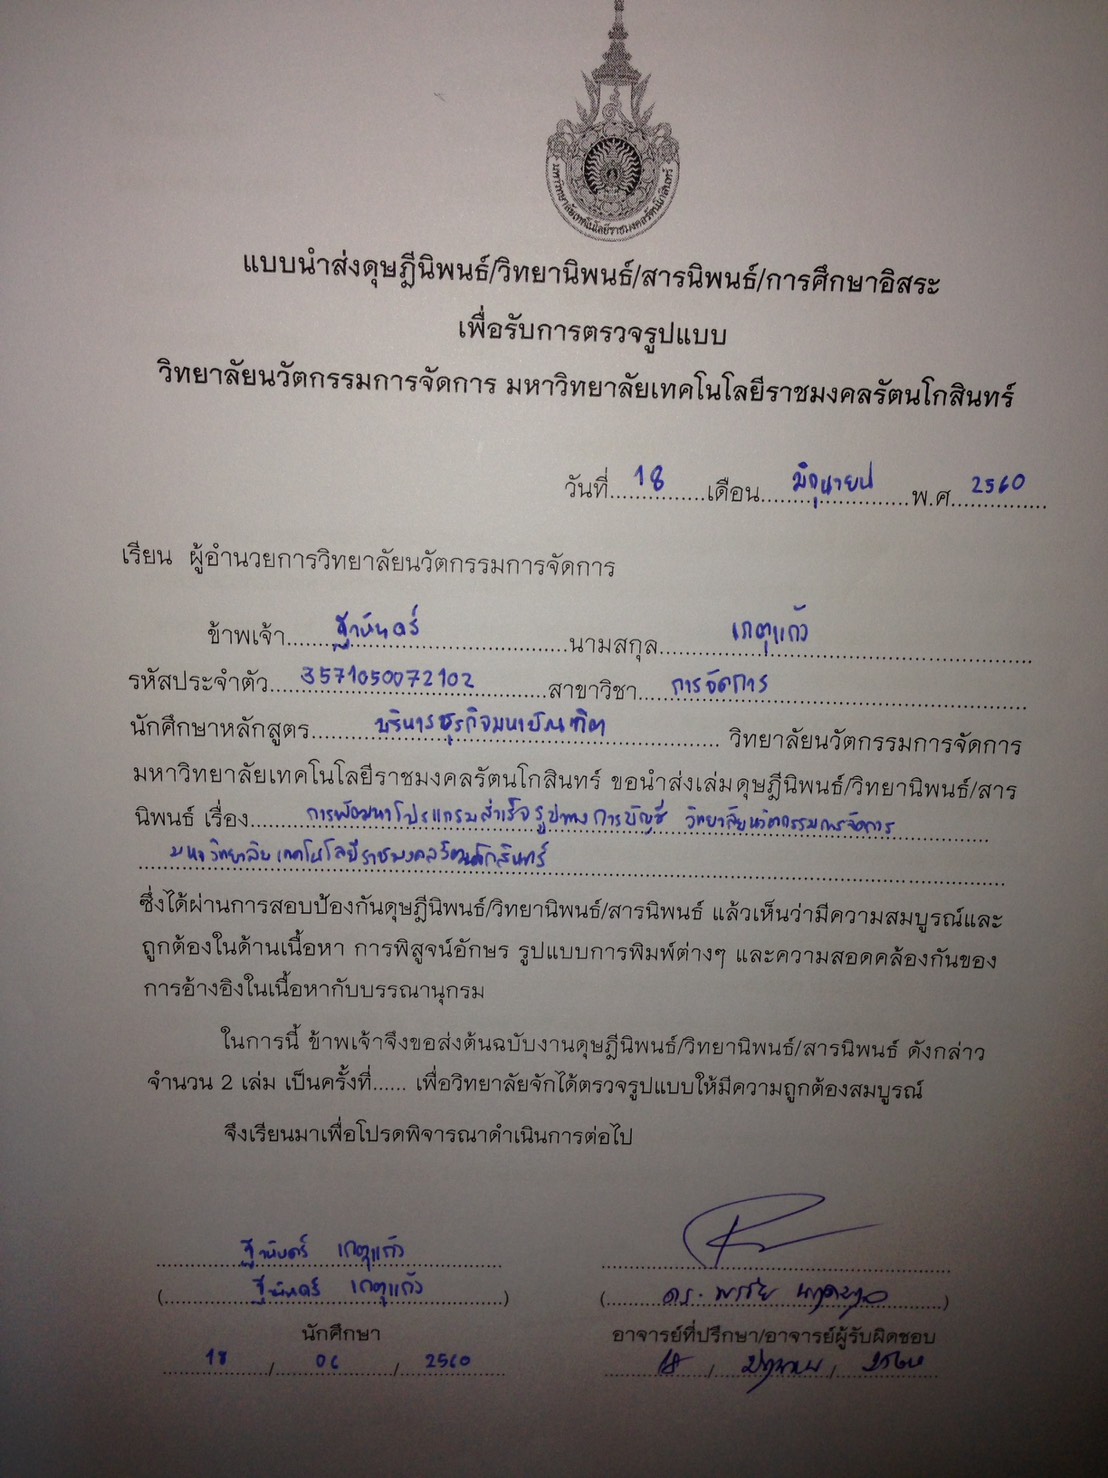 มหาวิทยาลัยเทคโนโลยีราชมงคลรัตนโกสินทร์
แบบนำส่งดุษฎีนิพนธ์/วิทยานิพนธ์/สารนิพนธ์/การศึกษาอิสระ
เพื่อรับการตรวจรูปแบบ
วิทยาลัยนวัตกรรมการจัดการ มหาวิทยาลัยเทคโนโลยีราชมงคลรัตนโกสินทร์
วันที่ 18 เดือน มิถุนายน พ.ศ. 2560
เรียน ผู้อำนวยการวิทยาลัยนวัตกรรมการจัดการ
ข้าพเจ้า ฐานินดร์ นามสกุล เกตุแก้ว
รหัสประจำตัว 3571050072102 สาขาวิชา การจัดการ
นักศึกษาหลักสูตร บริหารธุรกิจมหาบัณฑิต วิทยาลัยนวัตกรรมการจัดการ
มหาวิทยาลัยเทคโนโลยีราชมงคลรัตนโกสินทร์ ขอนำส่งเล่มดุษฎีนิพนธ์/วิทยานิพนธ์/สาร
นิพนธ์ เรื่อง การพัฒนาโปรแกรมสำเร็จรูปทางการบัญชี วิทยาลัยนวัตกรรมการจัดการ
มหาวิทยาลัยเทคโนโลยีราชมงคลรัตนโกสินทร์
ซึ่งได้ผ่านการสอบป้องกันดุษฎีนิพนธ์/วิทยานิพนธ์/สารนิพนธ์ แล้วเห็นว่ามีความสมบูรณ์และ
ถูกต้องในด้านเนื้อหา การพิสูจน์อักษร รูปแบบการพิมพ์ต่างๆ และความสอดคล้องกันของ
การอ้างอิงในเนื้อหากับบรรณานุกรม
ในการนี้ ข้าพเจ้าจึงขอส่งต้นฉบับงานดุษฎีนิพนธ์/วิทยานิพนธ์/สารนิพนธ์ ดังกล่าว
จำนวน 2 เล่ม เป็นครั้งที่...... เพื่อวิทยาลัยจักได้ตรวจรูปแบบให้มีความถูกต้องสมบูรณ์
จึงเรียนมาเพื่อโปรดพิจารณาดำเนินการต่อไป
ฐานินดร์ เกตุแก้ว
(ฐานินดร์ เกตุแก้ว) (ดร. พรชัย)
นักศึกษา อาจารย์ที่ปรึกษา/อาจารย์ผู้รับผิดชอบ
18 / 06 / 2560 18 / มิถุนายน / 2560